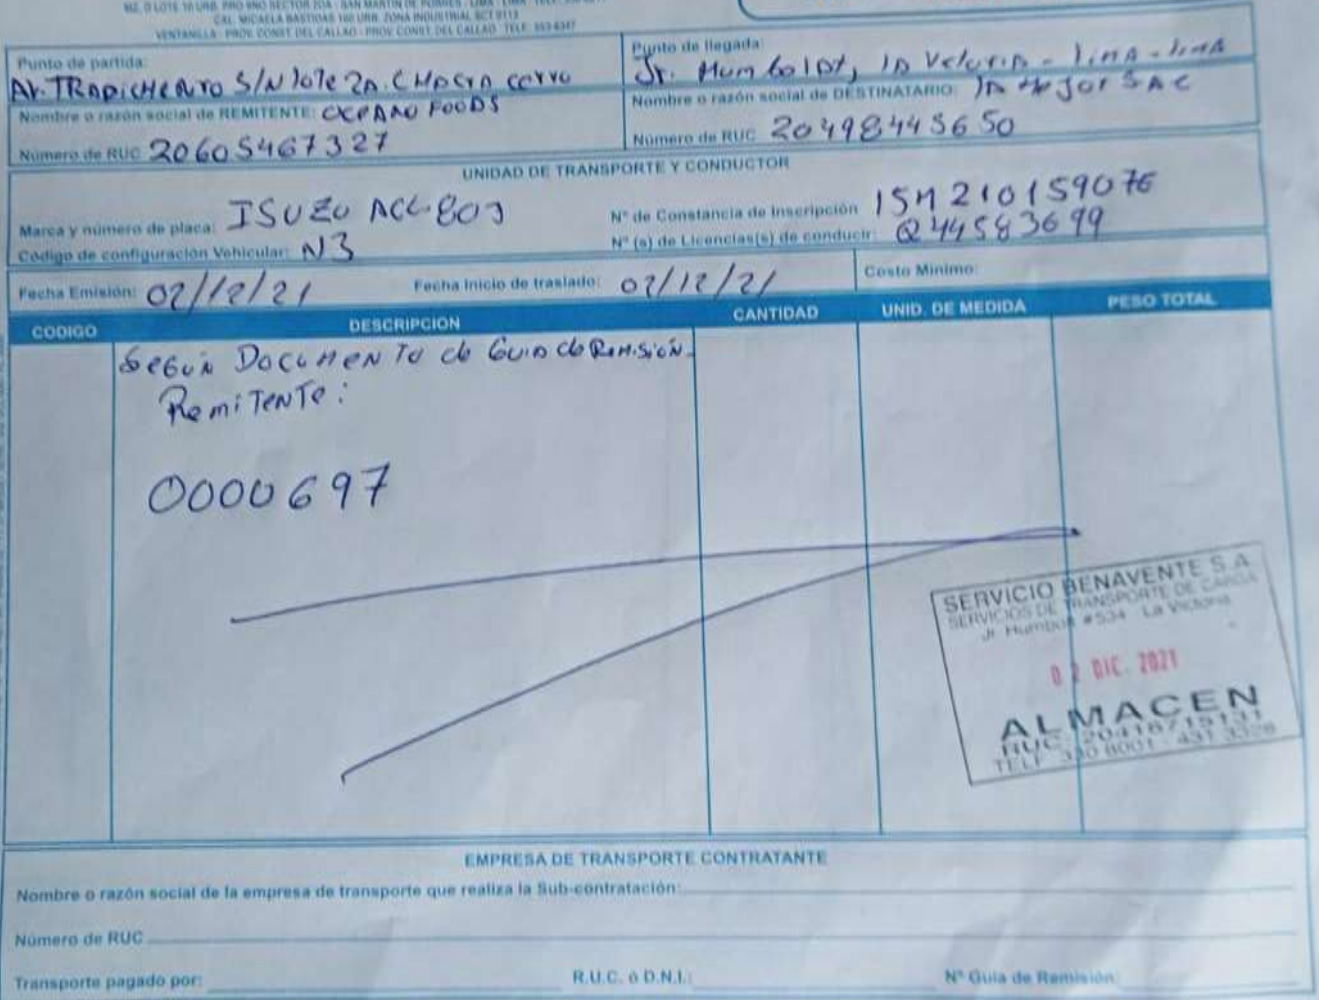 MZ. D LOTE 10 URB. PRO 9NO SECTOR 2DA - SAN MARTIN DE PORRES - LIMA - LIMA
CAL. MICAELA BASTIDAS 160 URB. ZONA INDUSTRIAL SCT 0113
VENTANILLA - PROV. CONST. DEL CALLAO - PROV. CONST. DEL CALLAO TELF. 553-6347
Punto de partida:
Av. TRAPICHE NTO S/N lote 2A. CHACRA CERRO
Nombre o razón social de REMITENTE: EXPANO FOODS
Número de RUC 20605467327
Punto de llegada:
Jr. Humboldt, la Victoria - Lima - Lima
Nombre o razón social de DESTINATARIO: la Mejor SAC
Número de RUC 20498445650
UNIDAD DE TRANSPORTE Y CONDUCTOR
Marca y número de placa: ISUZU ACL-803
Código de configuración Vehicular: N3
N° de Constancia de Inscripción 15M21015907E
N° (s) de Licencias(s) de conducir: Q44583699
Fecha Emisión: 02/12/21
Fecha Inicio de traslado: 02/12/21
Costo Minimo:
CODIGO DESCRIPCION CANTIDAD UNID. DE MEDIDA PESO TOTAL
Según Documento de Guia de Remisión
Remitente:
0000697
SERVICIO BENAVENTE S.A
SERVICIOS DE TRANSPORTE DE CARGA
Jr Humbolt #534 La Victoria
02 DIC. 2021
ALMACEN
RUC 20416715131
TELF 330 8001 431 3326
EMPRESA DE TRANSPORTE CONTRATANTE
Nombre o razón social de la empresa de transporte que realiza la Sub-contratación:
Número de RUC
Transporte pagado por: R.U.C. ó D.N.I.: N° Guia de Remisión: